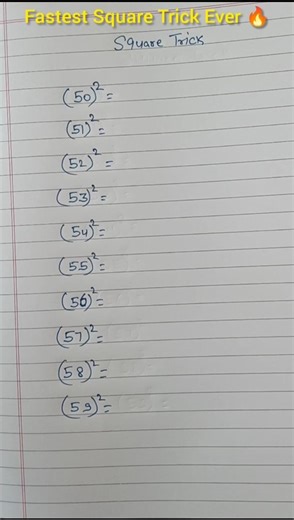 Fastest Square Trick Ever 🔥
Square Trick
(50)²=
(51)²=
(52)²=
(53)²=
(54)²=
(55)²=
(56)²=
(57)²=
(58)²=
(59)²=